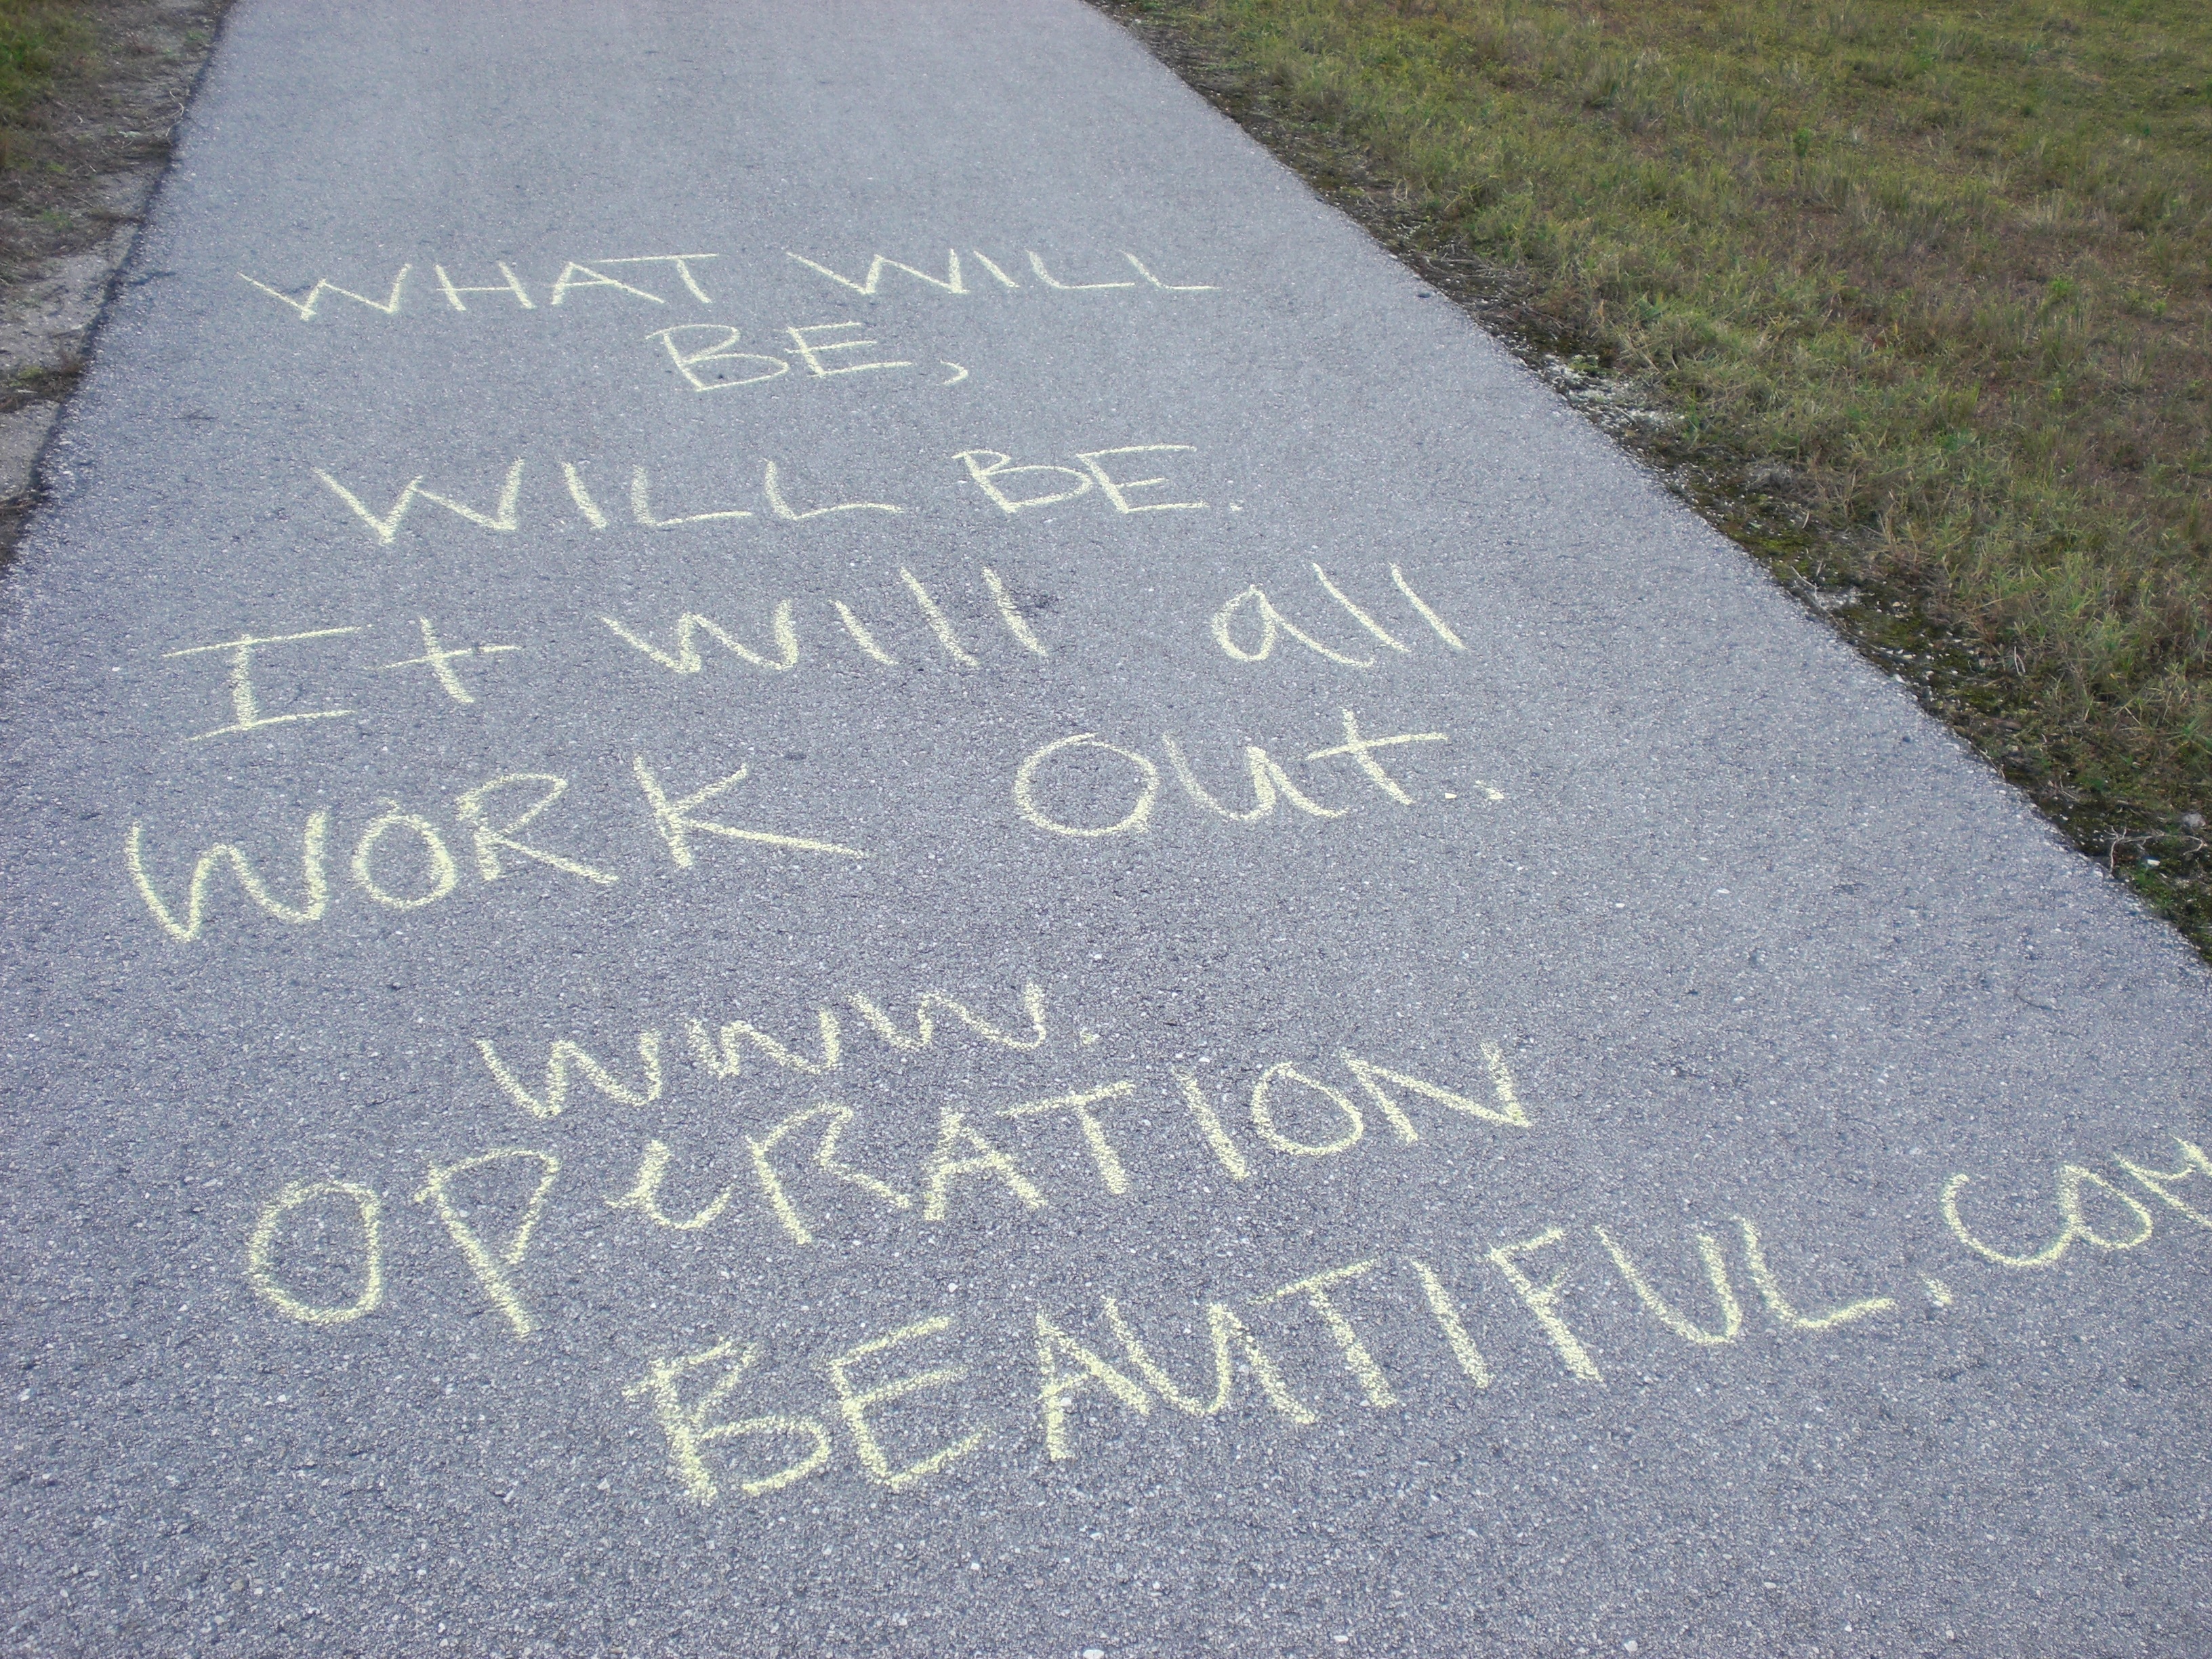 WHAT WILL
BE,
WILL BE.
It will all
WORK Out..
www.
OPeRATION
BEAUTIFUL.COM